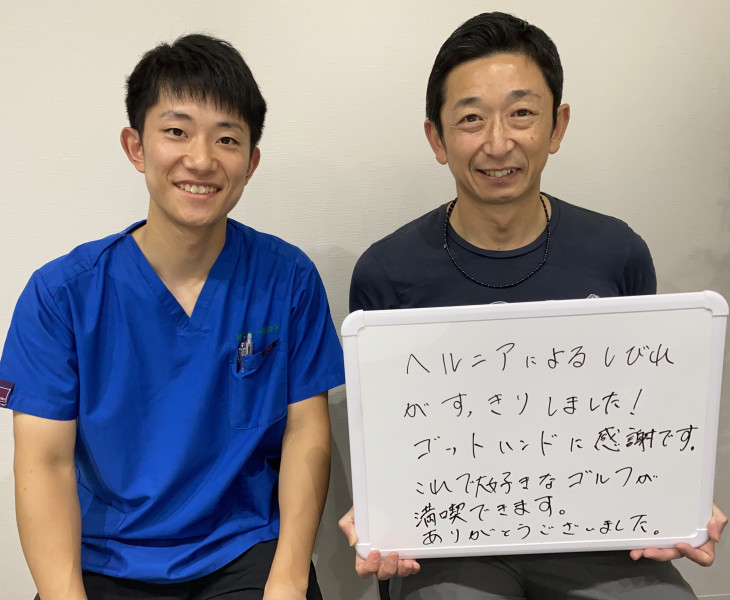 ヘルニアによるしびれ
がすっきりしました!
ゴットハンドに感謝です。
これで大好きなゴルフが
満喫できます。
ありがとうございました。